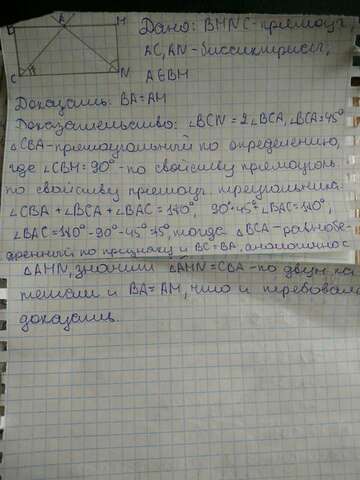 A M
Дано: BMNC-прямоуг,
C N
AC, AN-биссектрисы,
A∈BM
Доказать: BA=AM
Доказательство: ∠BCN = 2∠BCA, ∠BCA=45°
△CBA-прямоугольный по определению,
где ∠CBM=90°-по свойству прямоуг.
по свойству прямоуг. треугольника:
∠CBA+∠BCA+∠BAC=180°, 90°+45°+∠BAC=180°,
∠BAC=180°-90°-45°=45°, тогда △BCA-равнобе-
дренный по признаку и BC=BA, аналогично
△AMN, значит △AMN=CBA-по двум ка
тетам и BA=AM, что и требовало
доказать.